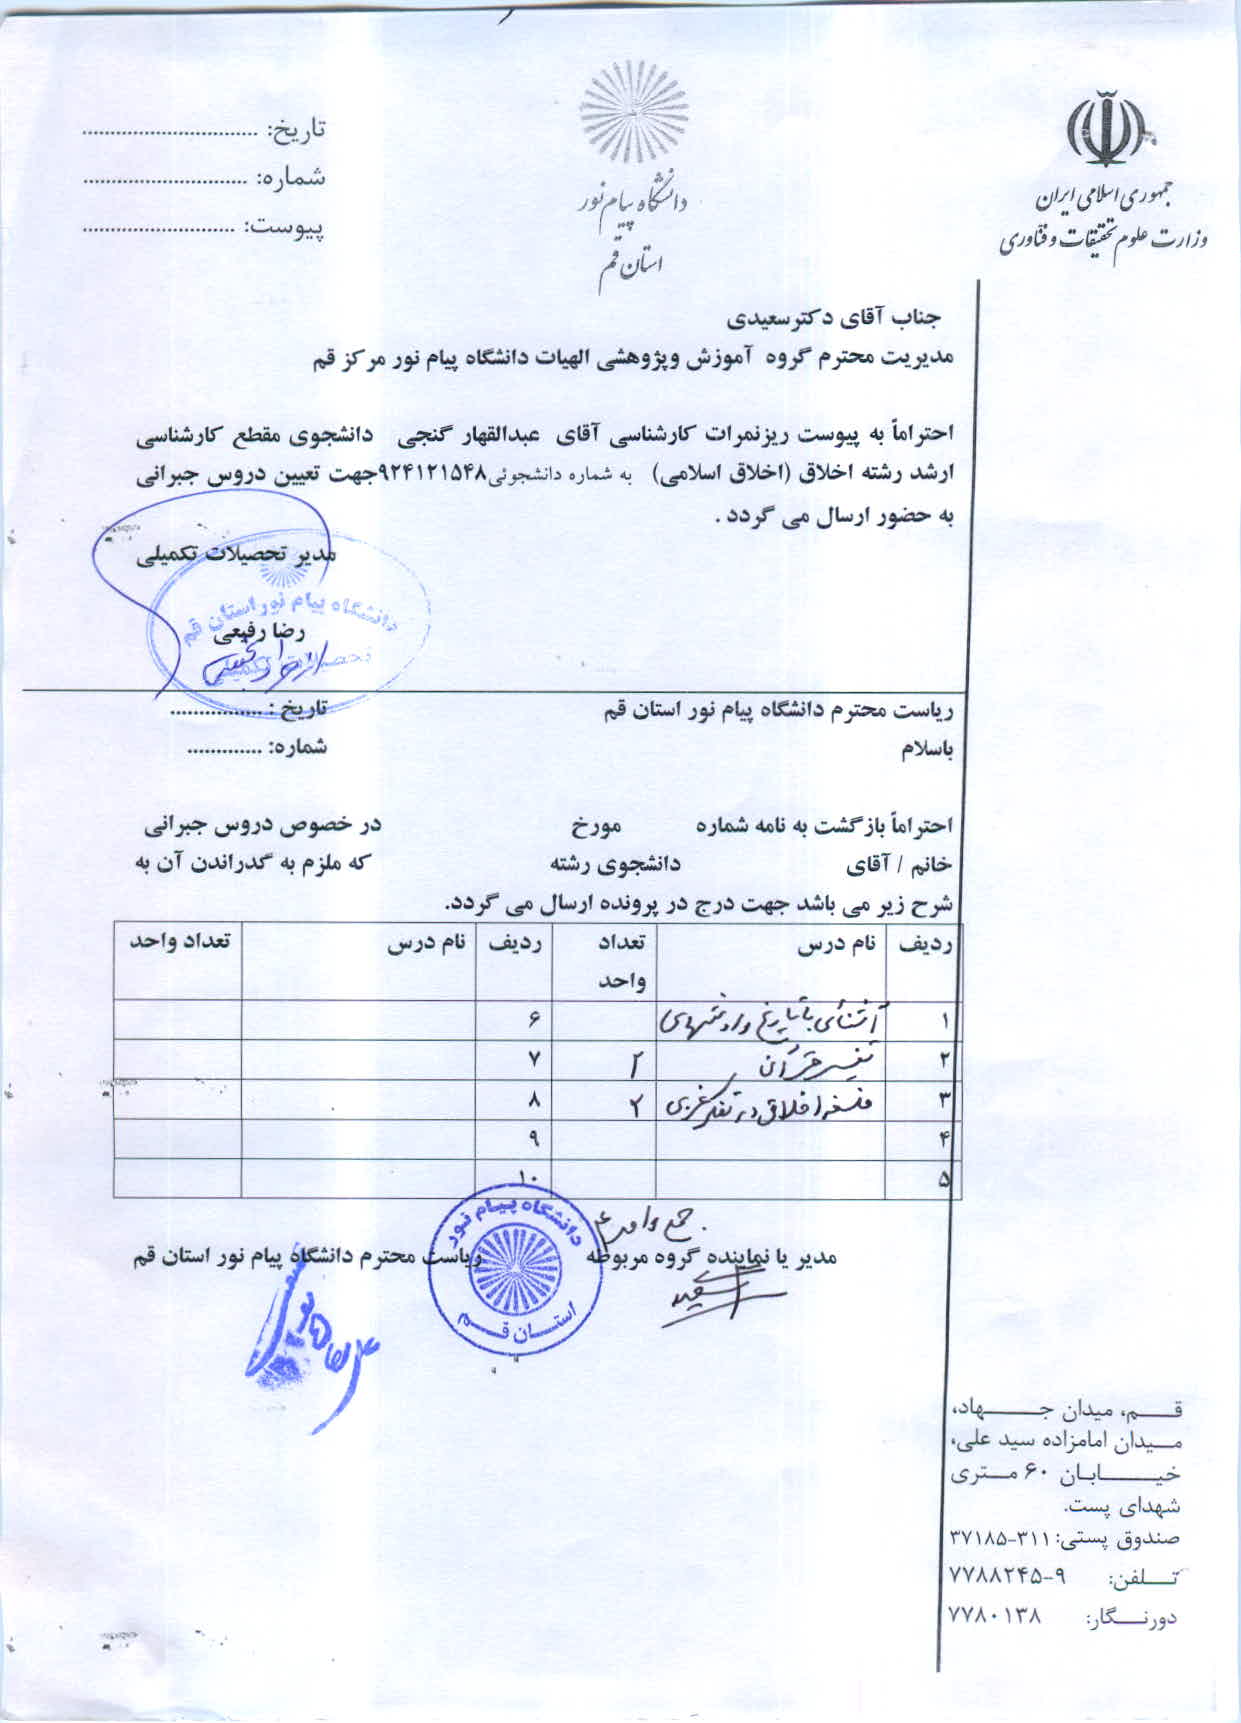 جمهوری اسلامی ایران
وزارت علوم تحقیقات و فناوری
دانشگاه پیام نور
استان قم
تاریخ: ..............................
شماره: ............................
پیوست: ..........................
جناب آقای دکترسعیدی
مدیریت محترم گروه آموزش وپژوهشی الهیات دانشگاه پیام نور مرکز قم
احتراماً به پیوست ریزنمرات کارشناسی آقای عبدالقهار گنجی دانشجوی مقطع کارشناسی
ارشد رشته اخلاق (اخلاق اسلامی) به شماره دانشجوئی۹۲۴۱۲۱۵۴۸جهت تعیین دروس جبرانی
به حضور ارسال می گردد .
مدیر تحصیلات تکمیلی
دانشگاه پیام نور استان قم
رضا رفیعی
تحصیلات تکمیلی
ریاست محترم دانشگاه پیام نور استان قم
تاریخ : ................
باسلام
شماره: .............
احتراماً بازگشت به نامه شماره مورخ در خصوص دروس جبرانی
خانم / آقای دانشجوی رشته که ملزم به گدراندن آن به
شرح زیر می باشد جهت درج در پرونده ارسال می گردد.
ردیف نام درس تعداد واحد ردیف نام درس تعداد واحد
۱ آشنائی با تاریخ و اندیشه‌های ۶
۲ تفسیر قرآن ۲ ۷
۳ فلسفه اخلاق در تفکر غربی ۲ ۸
۴ ۹
۵ ۱۰
جمع واحد ۴
مدیر یا نماینده گروه مربوطه ریاست محترم دانشگاه پیام نور استان قم
دانشگاه پیام نور
استان قم
قم، میدان جهاد،
میدان امامزاده سید علی،
خیابان ۶۰ متری
شهدای پست.
صندوق پستی: ۳۱۱-۳۷۱۸۵
تلفن: ۹-۷۷۸۸۲۴۵
دورنگار: ۷۷۸۰۱۳۸